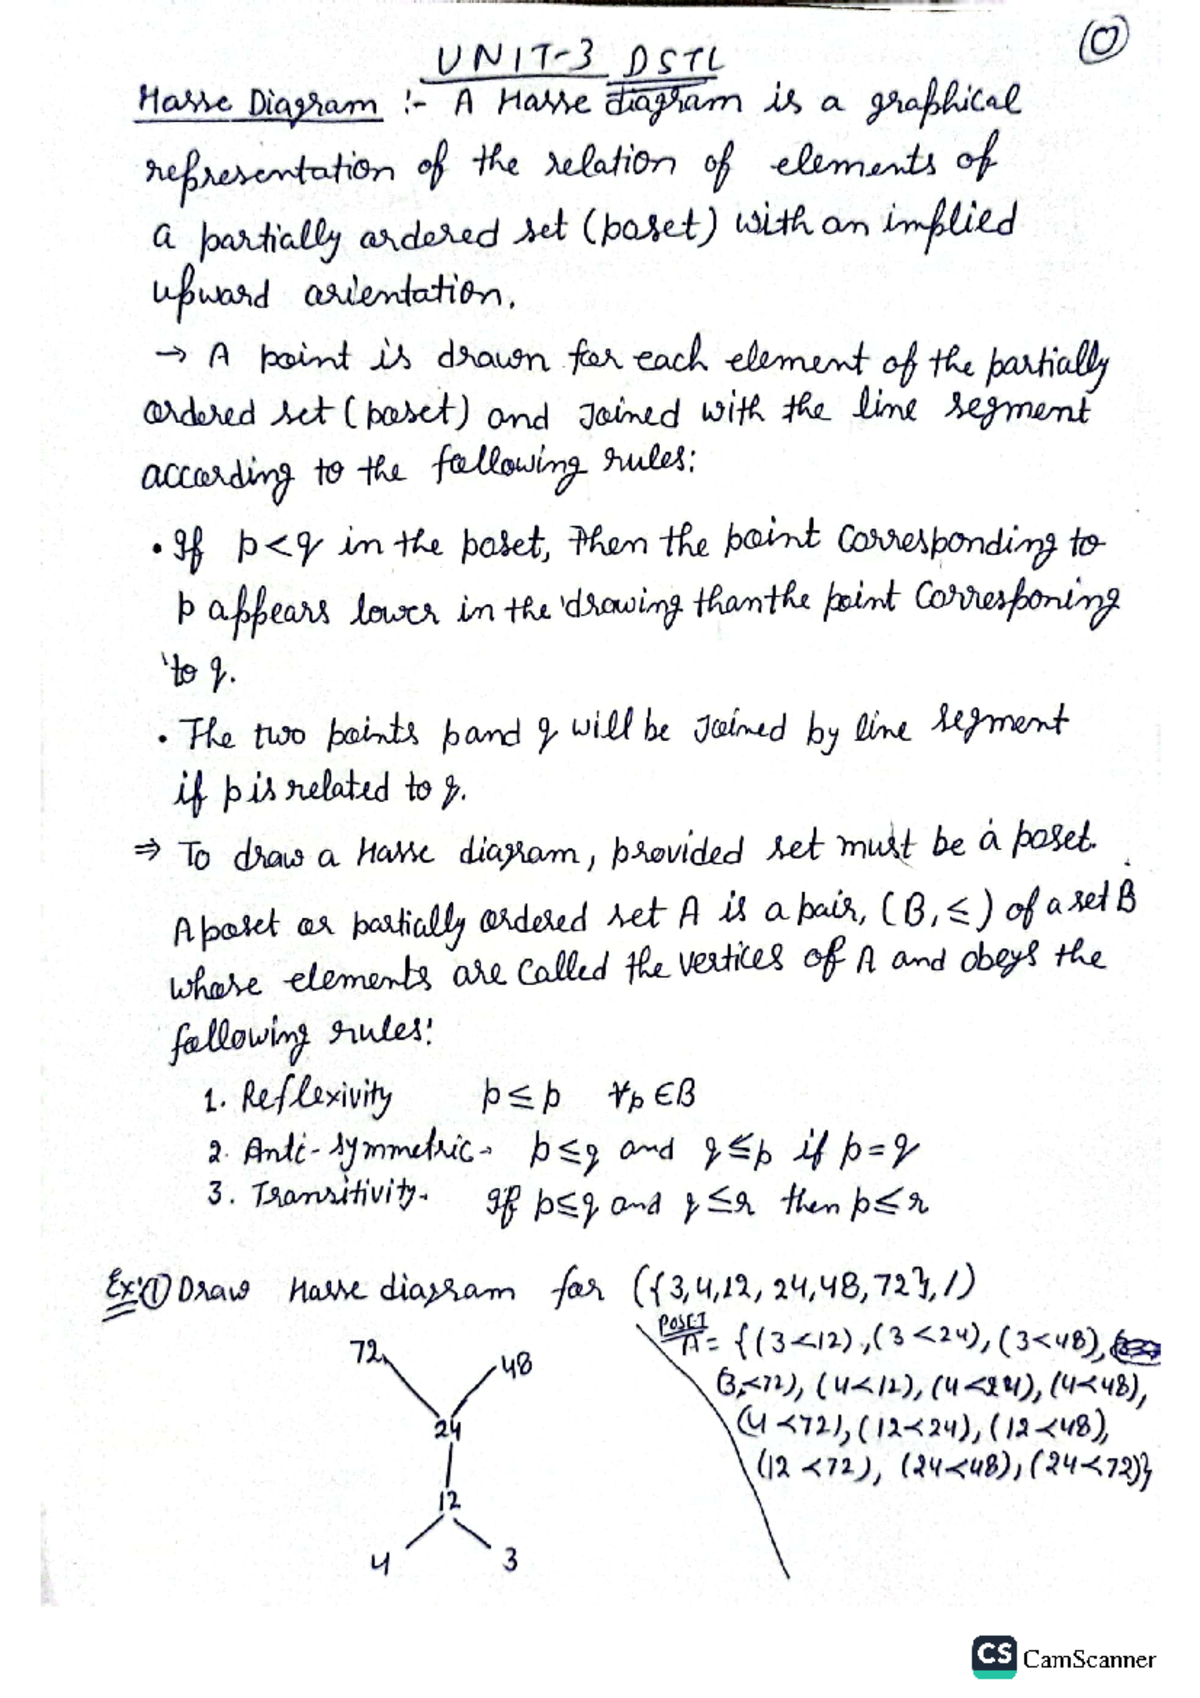 UNIT-3 DSTL
Hasse Diagram :- A Hasse diagram is a graphical
representation of the relation of elements of
a partially ordered set (poset) with an implied
upward orientation.
→ A point is drawn for each element of the partially
ordered set (poset) and Joined with the line segment
according to the following rules:
• If p<q in the poset, then the point corresponding to
p appears lower in the drawing than the point Corresponing
to q.
• The two points p and q will be Joined by line segment
if p is related to q.
⇒ To draw a Hasse diagram, provided set must be a poset.
A poset or partially ordered set A is a pair, (B, ≤) of a set B
whose elements are called the vertices of A and obeys the
following rules:
1. Reflexivity p≤p ∀p∈B
2. Anti-symmetric- p≤q and q≤p if p=q
3. Transitivity- If p≤q and q≤r then p≤r
Ex:① Draw Hasse diagram for ({3,4,12, 24,48,72}, /)
POSET
A = {(3<12), (3<24), (3<48),
(3,<72), (4<12), (4<24), (4<48),
(4<72), (12<24), (12<48),
(12<72), (24<48), (24<72)}
72
48
24
12
4 3
CS CamScanner